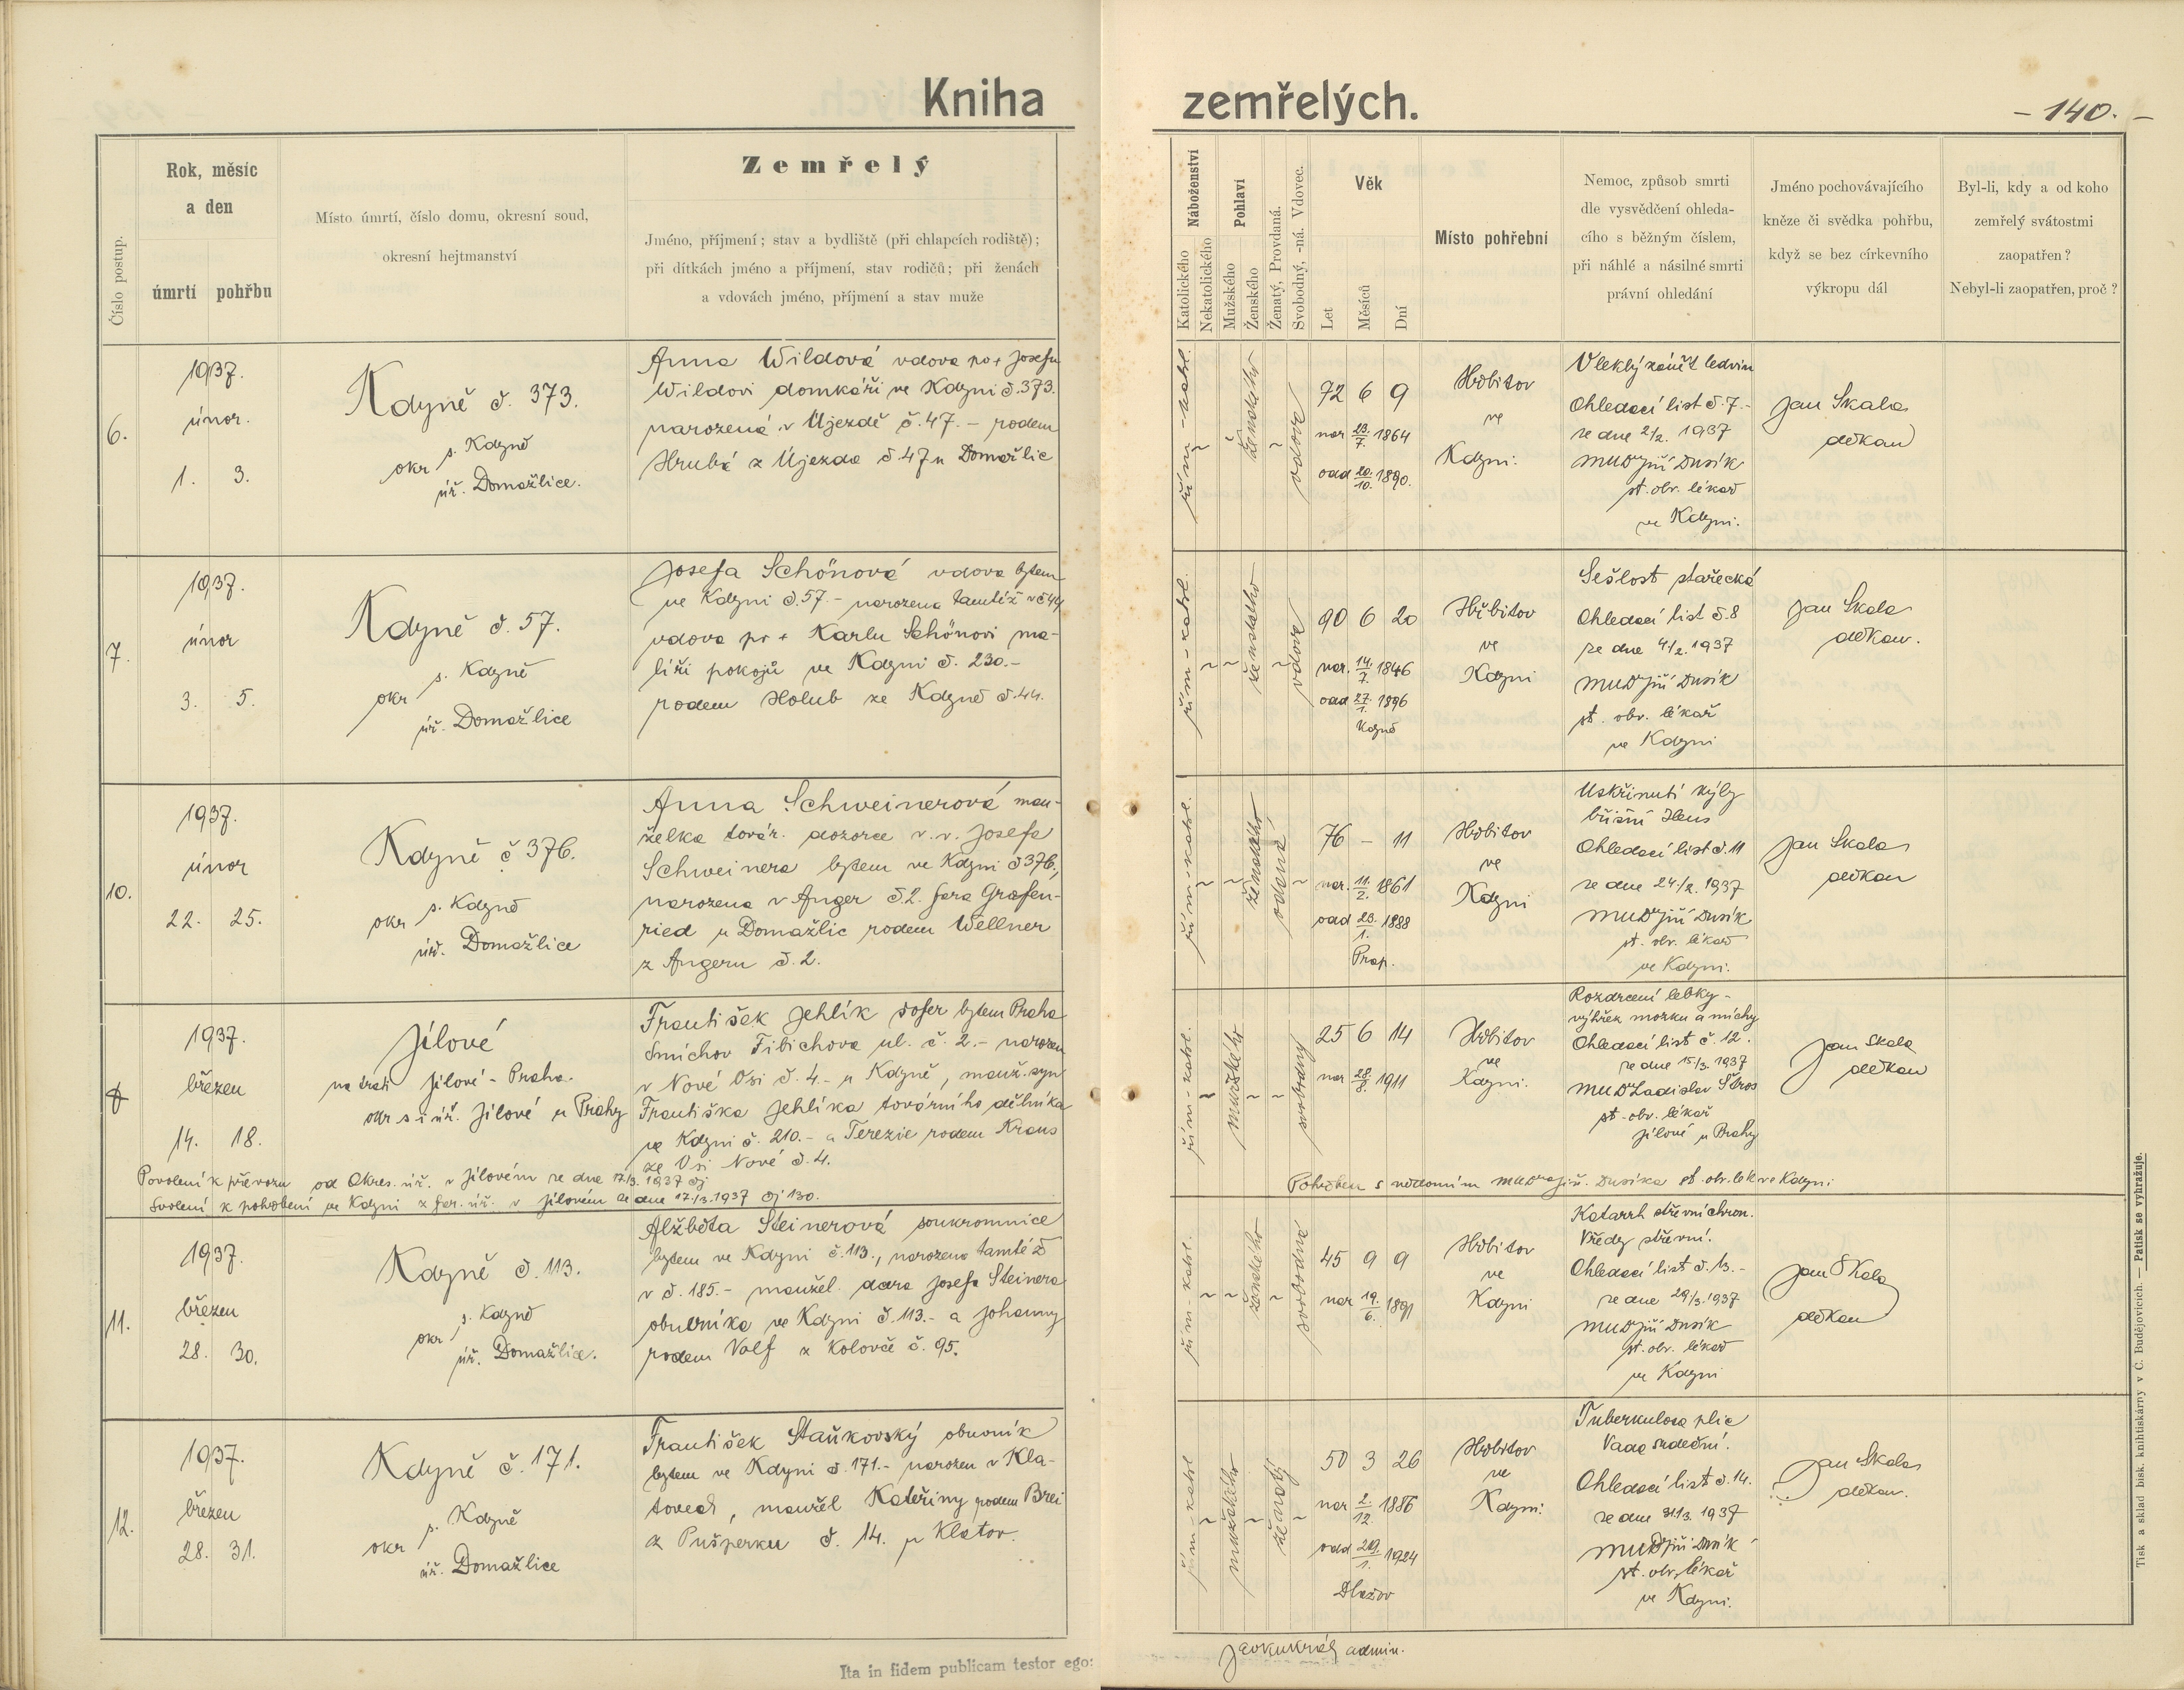 Kniha zemřelých.
- 140. -
Číslo postup.
Rok, měsíc
a den
úmrtí pohřbu
Místo úmrtí, číslo domu, okresní soud,
okresní hejtmanství
Zemřelý
Jméno, příjmení; stav a bydliště (při chlapcích rodiště);
při dítkách jméno a příjmení, stav rodičů; při ženách
a vdovách jméno, příjmení a stav muže
Náboženství
Katolického
Nekatolického
Pohlaví
Mužského
Ženského
Ženatý, Provdaná.
Svobodný, -ná. Vdovec.
Věk
Let
Měsíců
Dní
Místo pohřební
Nemoc, způsob smrti
dle vysvědčení ohleda-
cího s běžným číslem,
při náhlé a násilné smrti
právní ohledání
Jméno pochovávajícího
kněze či svědka pohřbu,
když se bez církevního
výkropu dál
Byl-li, kdy a od koho
zemřelý svátostmi
zaopatřen?
Nebyl-li zaopatřen, proč?
6.
1937.
únor.
1. 3.
Kdyně č. 373.
okr s. Kdyně
úř. Domažlice.
Anna Wildová vdova po + Josefu
Wildovi domkáři ve Kdyni č. 373.
narozená v Újezdě č. 47. - rodem
Hrubá z Újezda č. 47 u Domažlic
řím-katol.
ženského
vdova
72 6 9
nar 23./7. 1864
odd 20./10. 1890.
Hřbitov
ve
Kdyni.
Vleklý zánět ledvin
Ohledací list č. 7.-
ze dne 2/2. 1937
MUDr Jiří Dusík
st. obv. lékař
ve Kdyni.
Jan Skala
děkan
7.
1937.
únor
3. 5.
Kdyně č. 57.
okr s. Kdyně
úř. Domažlice
Josefa Schönová vdova bytem
ve Kdyni č. 57.- narozena tamtéž v č 44
vdova po + Karlu Schönovi ma-
líři pokojů ve Kdyni č. 230.-
rodem Holub ze Kdyně č. 44.
řím-katol.
ženského
vdova
90 6 20
nar. 14./7. 1846
odd 27./1. 1896
Kdyně
Hřbitov
ve
Kdyni
Sešlost stařecká
Ohledací list č. 8
ze dne 4/2. 1937
MUDr Jiří Dusík
st. obv. lékař
ve Kdyni
Jan Skala
děkan.
10.
1937.
únor
22. 25.
Kdyně č 376.
okr s. Kdyně
úř. Domažlice
Anna Schweinerová man-
želka továr. dozorce v. v. Josefa
Schweinera bytem ve Kdyni č 376.,
narozena v Anger č. 2. fara Grafen-
ried u Domažlic rodem Wellner
z Angeru č. 2.
řím-katol.
ženského
vdaná
76 - 11
nar. 11./2. 1861
odd 23./1. 1888
Hřbitov
ve
Kdyni
Uskřinutí kýly
břišní Ileus
Ohledací list č. 11
ze dne 24./2. 1937
MUDr Jiří Dusík
st. obv. lékař
ve Kdyni.
Jan Skala
děkan
1937.
březen
14. 18.
Jílové
na trati Jílové - Praha.
okr s i úř. Jílové u Prahy
František Jehlík šofer bytem Praha
Smíchov Fibichova ul. č. 2.- narozen
v Nové Vsi č. 4.- u Kdyně, manž. syn
Františka Jehlíka továrního dělníka
ve Kdyni č. 210.- a Terezie rodem Kraus
ze Vsi Nové č. 4.
Povolení k převozu od Okres. úř. v Jílovém ze dne 17/3. 1937 čj
Svolení k pohřbení ve Kdyni z far. úř. v Jílovém ze dne 17./3. 1937 čj 130.
řím-katol.
mužského
svobodný
25 6 14
nar 28./8. 1911
Hřbitov
ve
Kdyni.
Rozdrcení lebky -
výhřez mozku a míchy
Ohledací list č. 12.
ze dne 15/3. 1937
MUDr Ladislav
st. obv. lékař
Jílové u Prahy
Jan Skala
děkan
Pohřben s vědomím MUDra Jiř. Dusíka st. obv. lék ve Kdyni
11.
1937.
březen
28. 30.
Kdyně č. 113.
okr s. Kdyně
úř. Domažlice.
Alžběta Steinerová soukromnice
bytem ve Kdyni č. 113., narozena tamtéž
v č. 185.- manžel. dcera Josefa Steinera
obuvníka ve Kdyni č. 113.- a Johanny
rodem Volf z Kolovče č. 95.
řím-katol.
ženského
svobodná
45 9 9
nar 19./6. 1891
Hřbitov
ve
Kdyni
Katarrh střevní chron.
Vředy střevní.
Ohledací list č. 13.-
ze dne 29/3. 1937
MUDr Jiří Dusík
st. obv. lékař
ve Kdyni
Jan Skala
děkan
12.
1937.
březen
28. 31.
Kdyně č. 171.
okr s. Kdyně
úř. Domažlice
František Staňkovský obuvník
bytem ve Kdyni č. 171.- narozen v Kla-
tovech, manžel Kateřiny rodem Brei
z Pušperku č. 14. u Klatov.
řím-katol
mužského
ženatý
50 3 26
nar 2./12. 1886
odd 29./1. 1924
Dlažov
Hřbitov
ve
Kdyni.
Tuberkulosa plic
Vada srdeční.
Ohledací list č. 14.
ze dne 31/3. 1937
MUDr Jiří Dusík
st. obv. lékař
ve Kdyni.
Jan Skala
děkan.
Ita in fidem publicam testor ego:
admin.
Tisk a sklad bisk. knihtiskárny v Č. Budějovicích. — Patisk se vyhražuje.